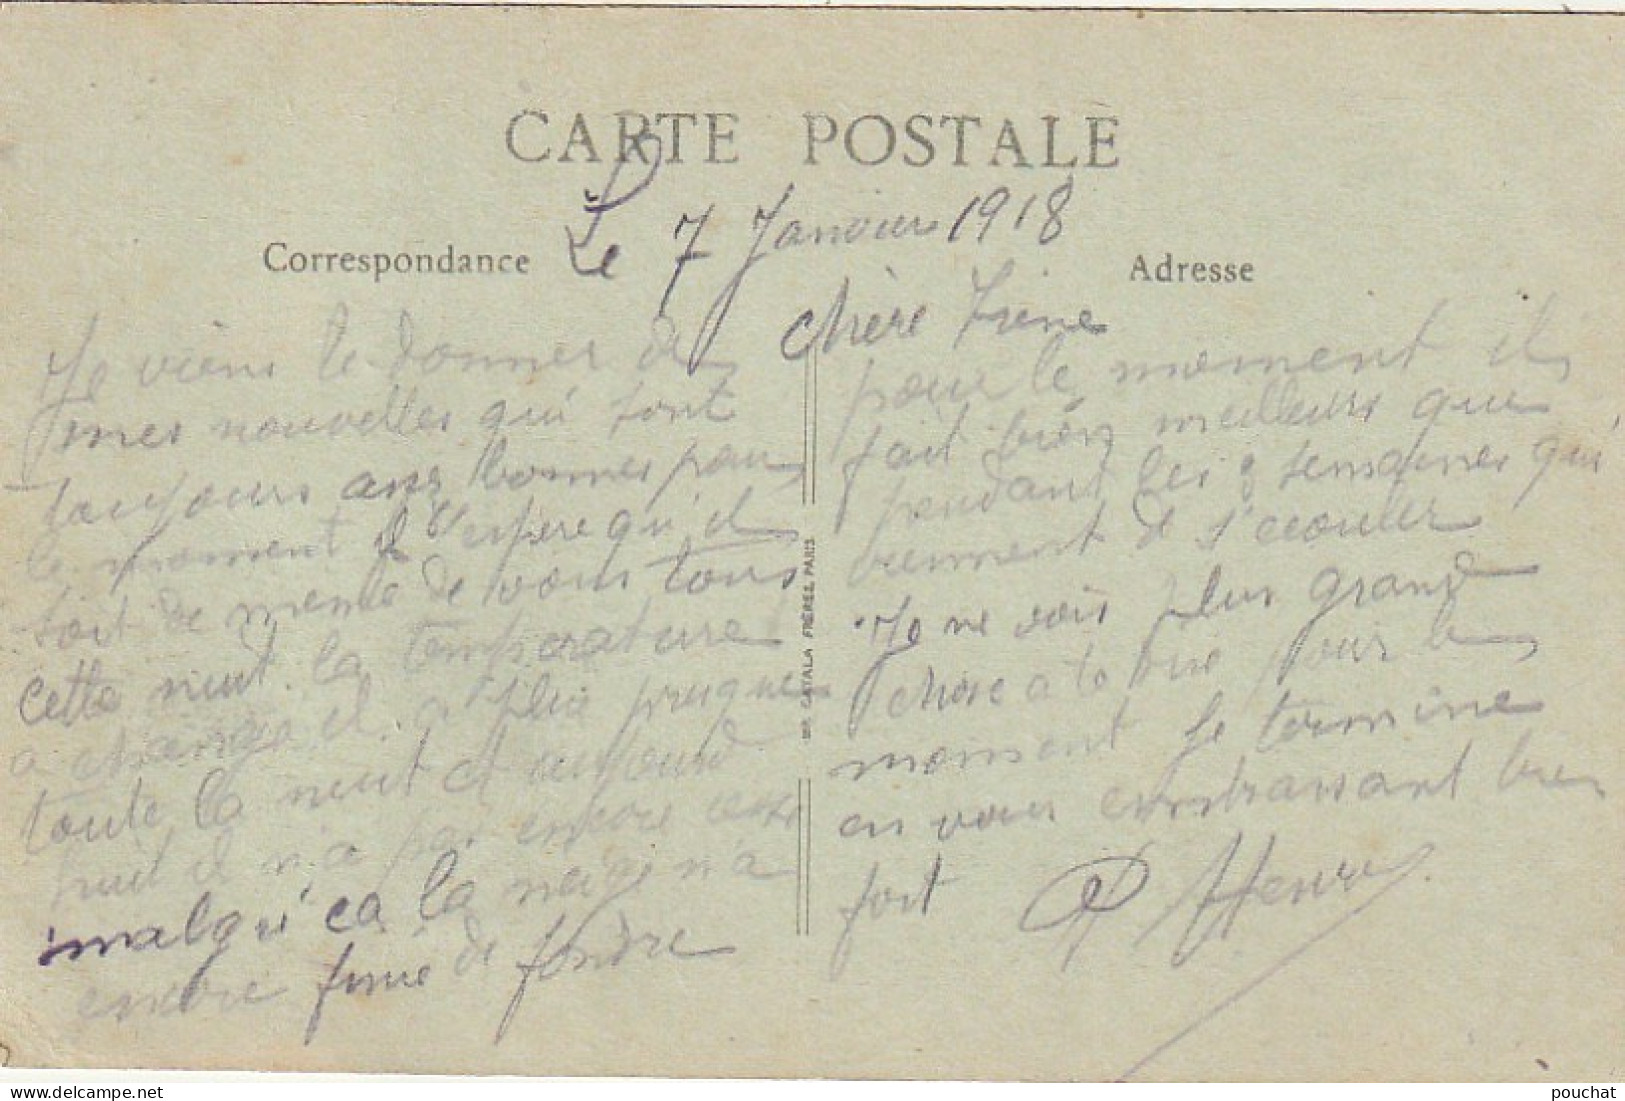 CARTE POSTALE
Le 7 Janvier 1918
Correspondance
Adresse
chère Irène
Je viens te donner de
mes nouvelles qui sont
toujours ass bonnes pour
le moment J'espère qu'il
soit de meme de vous tous
cette nuit la temporature
a changé il a plui presque
toute la nuit et aujourd
huit il n'a pas encore cessé
malgré ça la neige n'a
encore finie de fondre
pour le moment il
fait bien meilleurs que
pendant les 3 semaines qui
viennent de s'ecouler
Je ne vois plus grand
chose a te dire pour le
moment Je termine
en vous embrassant bien
fort
Henri
IMP. CATALA FRÈRES, PARIS
pouchat